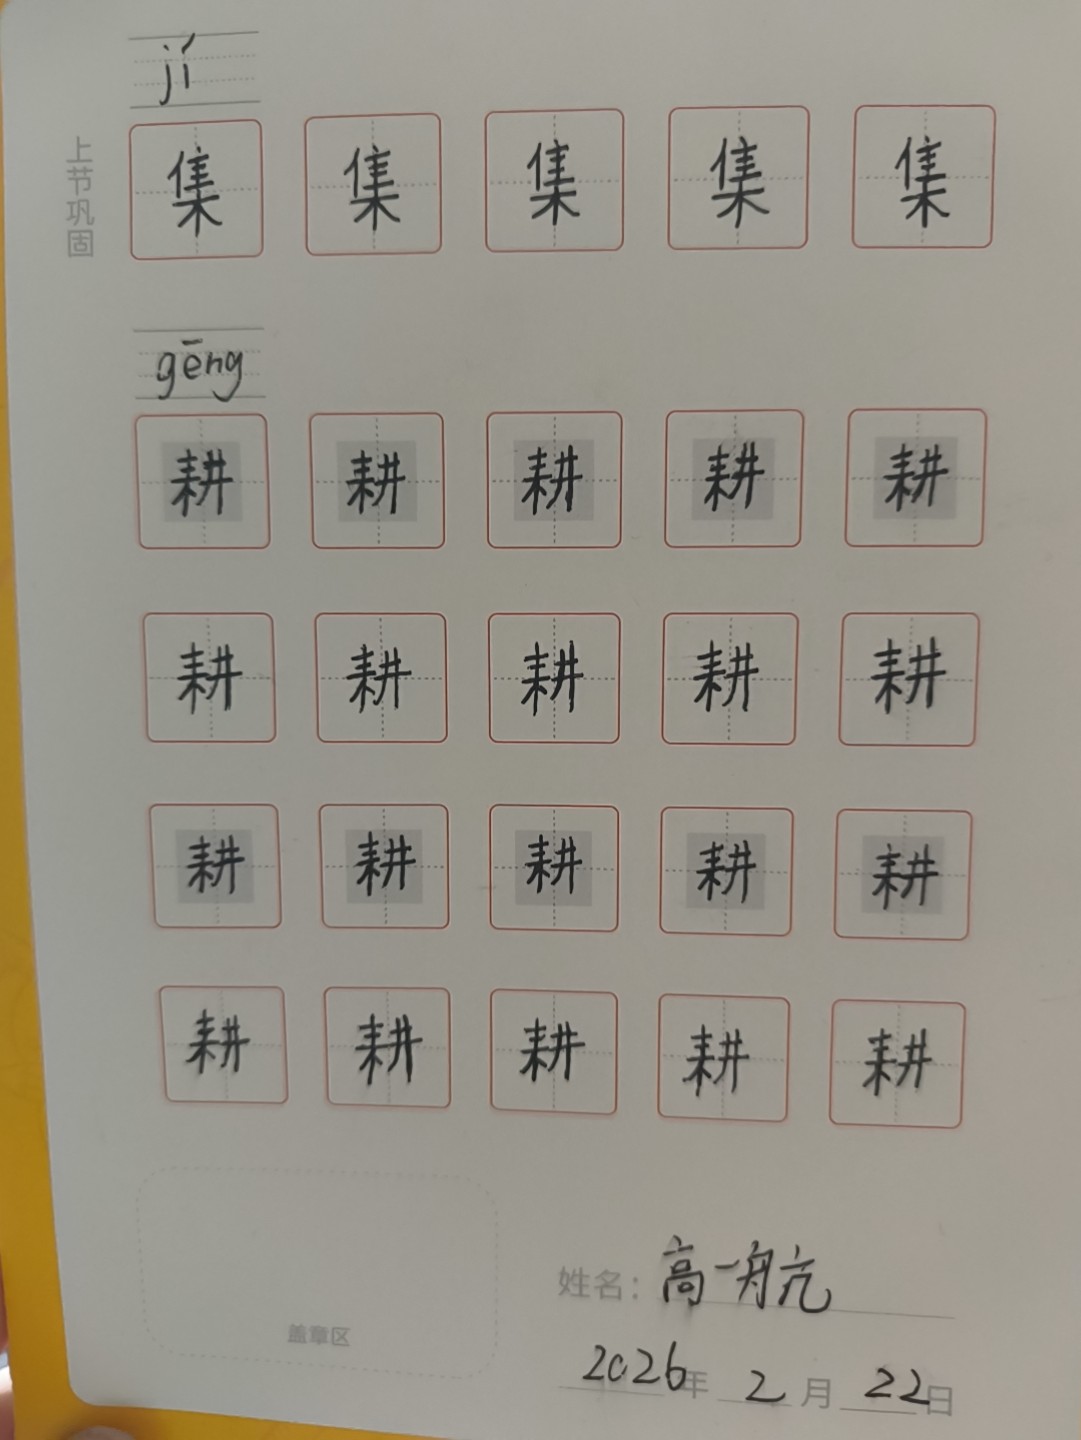 jí
上节巩固
集 集 集 集 集
gēng
耕 耕 耕 耕 耕
耕 耕 耕 耕 耕
耕 耕 耕 耕 耕
耕 耕 耕 耕 耕
盖章区
姓名：高一航
2026年 2 月 22日